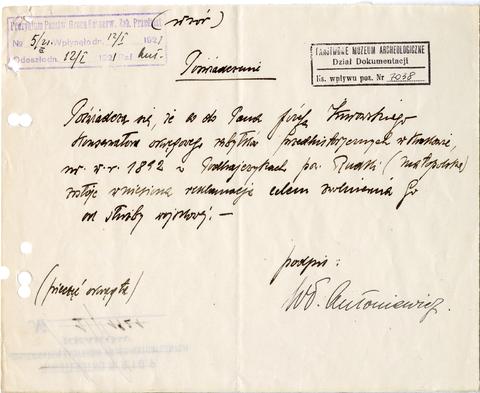 (wzór)
Prezydium Państw. Grona Konserw. Zab. Przedhist.
№ 5/21. Wpłynęło dn. 12/I 1921
Odesłano dn. 12/I 1921 Ref.
PAŃSTWOWE MUZEUM ARCHEOLOGICZNE
Dział Dokumentacji
Ks. wpływu poz. Nr 7058
Poświadczenie
Poświadcza się, że co do Pana Józefa Żurowskiego
Konserwatora okręgowego zabytków Przedhistorycznych w Krakowie,
ur. w r. 1892 w Podhajczykach pw. Rudki (Małopolska)
została wniesiona reklamacja celem zwolnienia Go
od służby wojskowej. —
podpis:
Wł. Antoniewicz.
(pieczęć okrągła)